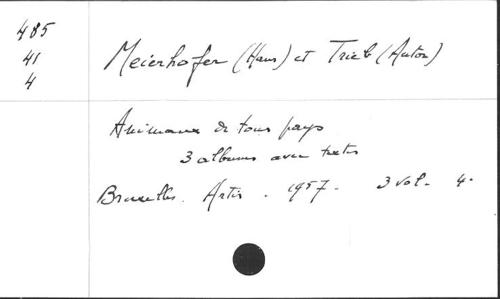 485
41
4
Meierhofer (Hans) et Trieb (Anton)
Animaux de tous pays
3 albums avec textes
Bruxelles. Artis. 1957. 3 vol. 4.